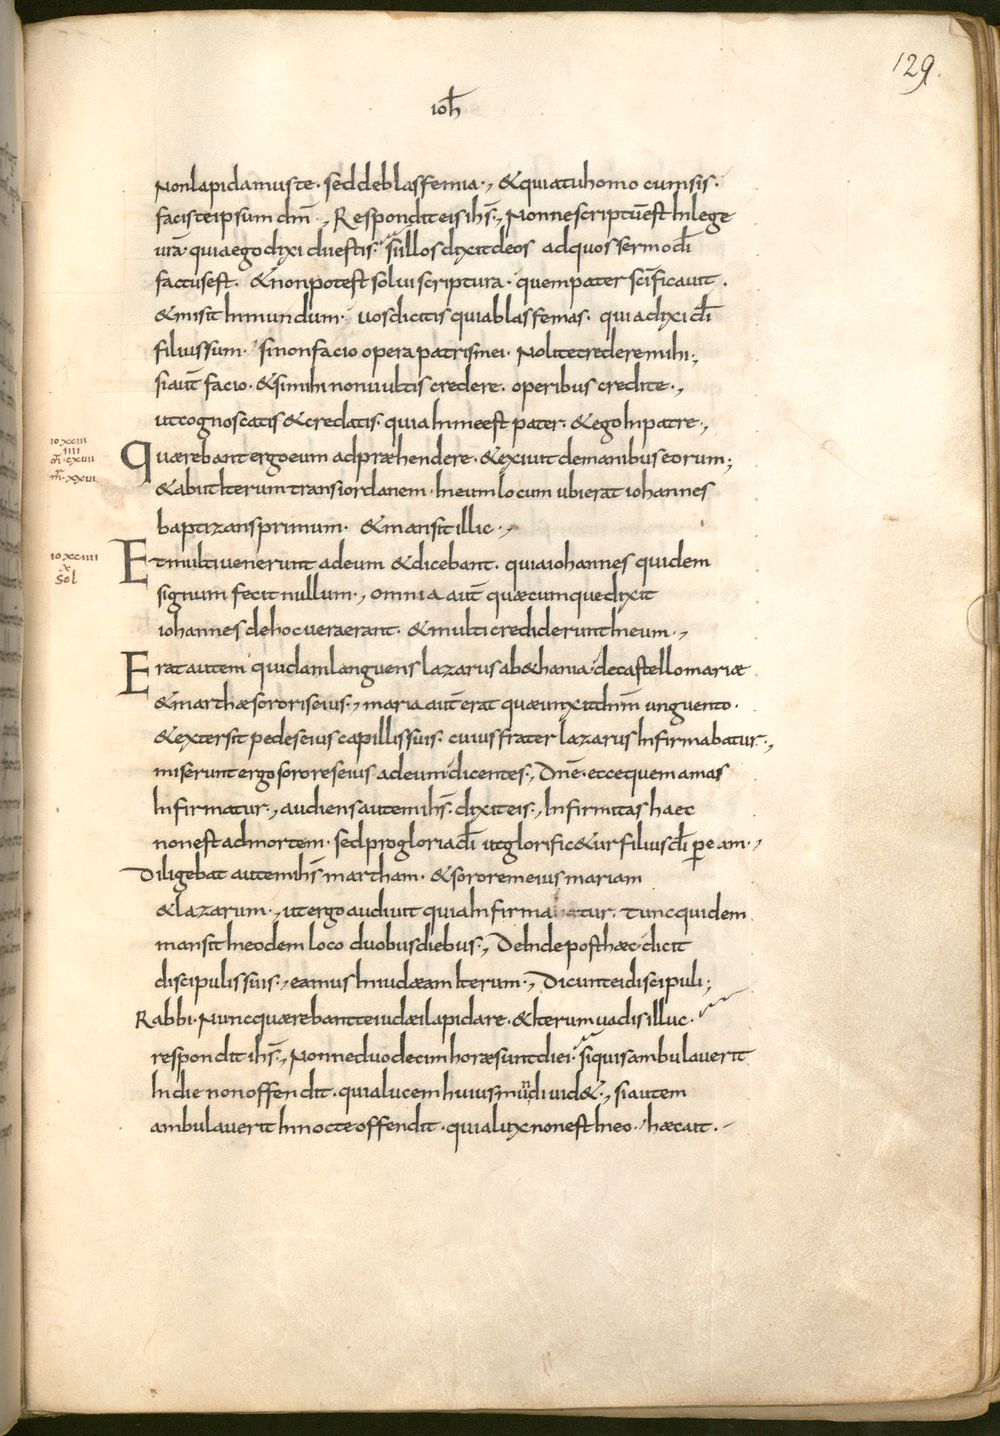 129.
ioh̄
Non lapidamus te · sed de blasfemia ·, & quia tu homo cum sis ·
facis te ipsum dm̄ ·, Respondit eis ihs̄ ·, Nonne scriptū est In lege
urā · quia ego dixi dii estis · si illos dixit deos ad quos sermo dī
factus est · & non potest solui scriptura · quem pater scīficauit ·
& misit In mundum · uos dicitis quia blasfemas · quia dixi dī
filius sum · si non facio opera patris mei · Nolite credere mihi ·,
si aut̄ facio · & si mihi non uultis credere · operibus credite ·,
ut cognoscatis & credatis · quia In me est pater · & ego In patre ·,
io xciii
iiii
m̄ · cxiii
m̄ · xxiii
Quærebant ergo eum adpræhendere · & exiuit de manibus eorum ;
& abiit Iterum trans iordanem · In eum locum ubi erat iohannes
baptizans primum · & mansit illic ·,
io xciiii
x
sol
Et multi uenerunt ad eum & dicebant · quia iohannes quidem
signum fecit nullum ·, omnia aut̄ quæcumque dixit
iohannes de hoc uera erant · & multi crediderunt In eum ·,
Erat autem quidam languens lazarus a b&hania · de castello mariæ
& marthæ sororis eius ·, maria aut̄ erat quæ unxit dnm̄ unguento ·
& extersit pedes eius capillis suis · cuius frater lazarus Infirmabatur ·,
miserunt ergo sorores eius ad eum dicentes ·, Dnē · ecce quem amas
Infirmatur ·, audiens autem ihs̄ · dixit eis ·, Infirmitas haec
non est ad mortem · sed pro gloria dī ut glorific&ur filius dī p̄ eam ·,
Diligebat autem ihs̄ martham · & sororem eius mariam
& lazarum ·, ut ergo audiuit quia Infirmabatur · tunc quidem
mansit In eodem loco duobus diebus ·, Deinde post hæc · dicit
discipulis suis ·, eamus In iudæam Iterum ·, Dicunt ei discipuli ;
Rabbi · Nunc quærebant te iudæi lapidare · & Iterum uadis illuc ·
respondit ihs̄ ·, Nonne duodecim horæ sunt diei · si quis ambulauerit
In die non offendit · quia lucem huius mundi uid& ·, si autem
ambulauerit In nocte offendit · quia lux non est In eo ·, hæc ait ·